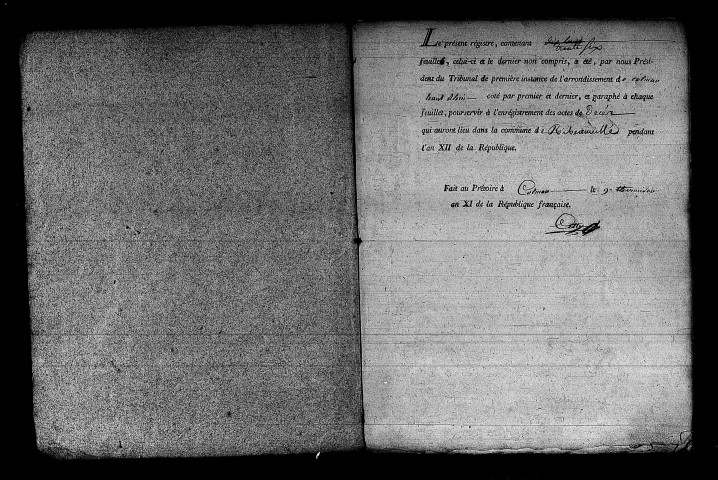 Le présent régistre, contenant trente six
feuillets, celui-ci et le dernier non compris, a été, par nous Prési-
dent du Tribunal de première instance de l'arrondissement de colmar
haut Rhin coté par premier et dernier, et paraphé à chaque
feuillet, pour servir à l'enrégistrement des actes de Décès
qui auront lieu dans la commune de Ribeauvillé pendant
l'an XII de la République.
Fait au Prétoire à Colmar le 9 thermidor
an XI de la République française.